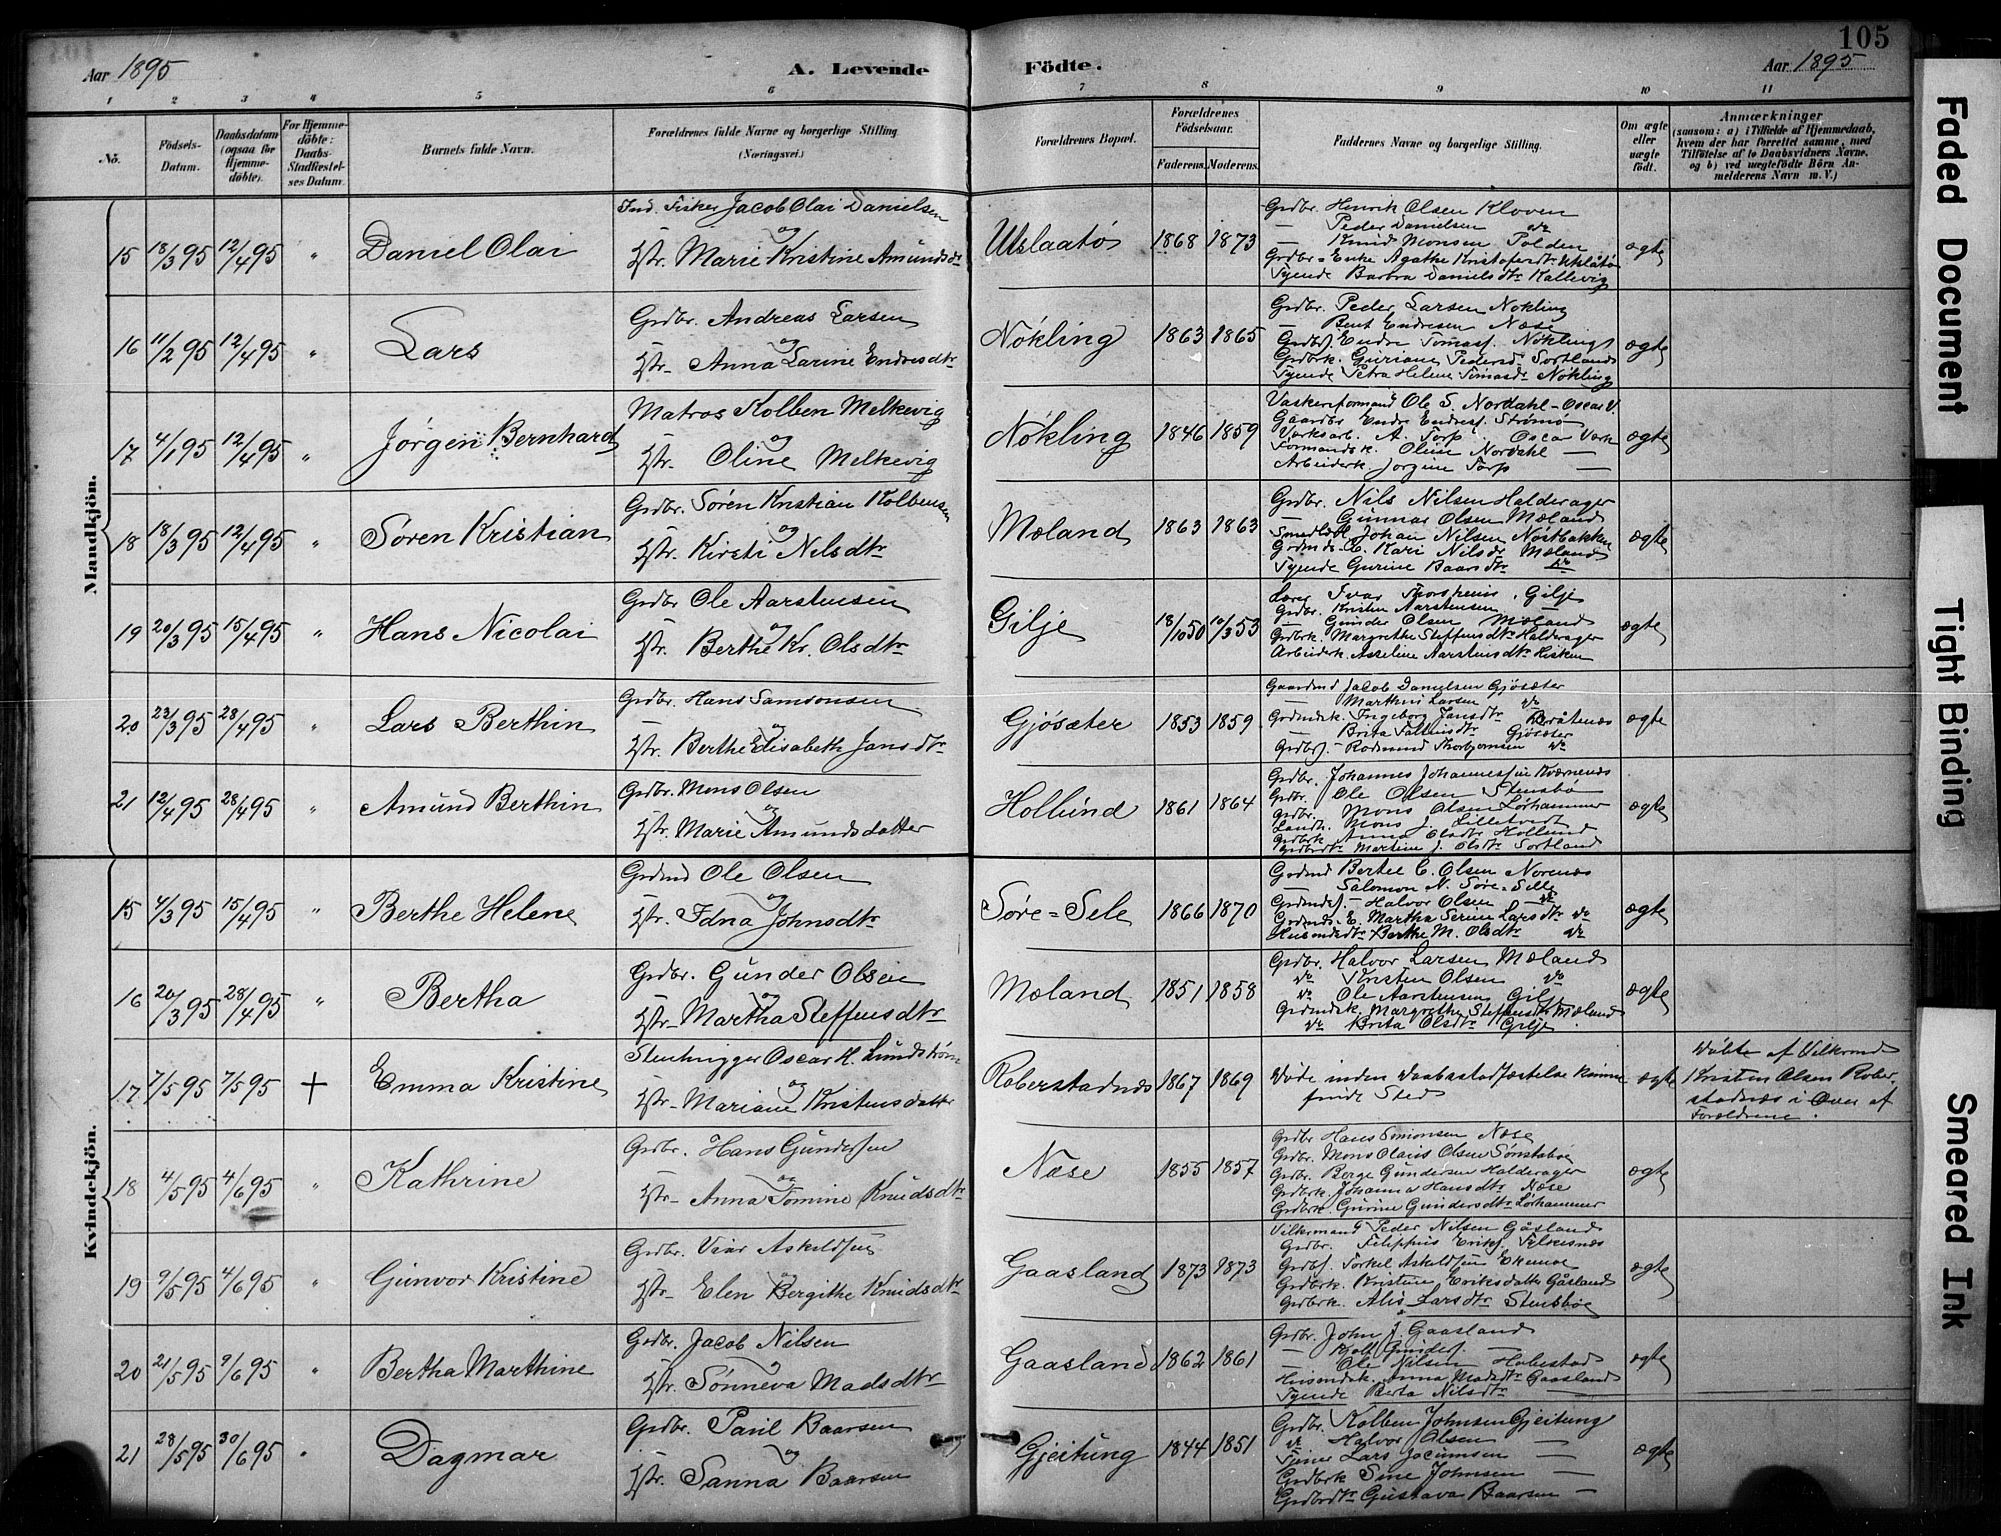 105
Aar 1895
A. Levende
Födte.
Aar 1895
1 2 3 4 5 6 7 8 9 10 11
No.
Födsels-
Datum.
Daabsdatum
(ogsaa for
Hjemme-
döbte).
For Hjemme-
döbte:
Daabs-
Stadfæstel-
ses Datum.
Barnets fulde Navn.
Forældrenes fulde Navne og borgerlige Stilling
(Næringsvei.)
Forældrenes Bopæl.
Forældrenes
Födselsaar.
Faderens. Moderens.
Faddernes Navne og borgerlige Stilling.
Om ægte
eller
uægte
födt.
Anmærkninger
(saasom: a) i Tilfælde af Hjemmedaab,
hvem der har forrettet samme, med
Tilföielse af to Daabsvidners Navne,
og b) ved uægtefödte Börn An-
melderens Navn m. V.)
Mandkjön.
15 18/3 95 12/4 95 "
Daniel Olai
Ind. Fisker Jacob Olai Danielsen
og
Hstr. Marie Kristine Amundsdtr
Utslaatø
1868 1873
Grdbr. Henrik Olsen Kloven
— Peder Danielsen do
— Knud Monsen Polden
Grdbr-Enke Agathe Kristofersdtr Utslåtø
Tyende Barbra Danielsdtr Kallevig
ægte
16 11/2 95 12/4 95 "
Lars
Grdbr. Andreas Larsen
og
Hstr. Anna Larine Endresdtr
Nökling
1863 1865
Grdbr. Peder Larsen Nökling
— Bent Endresen Næse
Grdbf. Endre Tomasf. Nökling
Grdbrk. Guriane Pedersd Sortland
Tyende Petra Helene Tomasdr Nökling
ægte
17 4/1 95 12/4 95 "
Jørgen Bernhard
Matros Kolben Melkevig
og
Hstr. Oline Melkevig
Nökling
1846 1859
Vaskeriformand Ole S. Nordahl - Oscar V.
Gaardbr Endre Endresf. Strømø
Værksarb. A. Torp Oscar Værk
Formandsk. Oline Nordahl —
Arbeiderk. Jorgine Torp —
ægte
18 18/3 95 12/4 95 "
Søren Kristian
Grdbr. Søren Kristian Kolbensen
og
Hstr. Kirsti Nilsdtr
Mæland
1863 1863
Grdbr. Nils Nilsen Halderager
— Gunnar Olsen Mæland
Johan Nilsen Nøstbakken
Kari Nilsdr Mæland
Tyende Gurine Baarsdtr do
ægte
19 20/3 95 15/4 95 "
Hans Nicolai
Grdbr Ole Aarstensen
og
Hstr. Berthe Kr. Olsdtr
Gilje
18/10 50 10/3 53
Lærer Ivar Gilje
Grdbr. Kristen Aarstensen —
— Gunder Olsen Mæland
Grdbrk. Margrethe Steffensdtr Halderager
Arbeiderk. Asseline Aarstensdtr Hisken
ægte
20 23/3 95 28/4 95 "
Lars Berthin
Grdbr. Hans Samsonsen
og
Hstr. Berthe Elisabeth Jansdtr
Gjösæter
1853 1859
Gaardmd Jacob Danielsen Gjösæter
— Marthin Larsen do
Grdmdsk. Ingeborg Jansdtr Bråtenæs
— Brita Gjösæter
Grdbrf. - Rasmund Thorbjornsen do
ægte
21 12/4 95 28/4 95 "
Amund Berthin
Grdbr. Mons Olsen
og
Hstr. Marie Amundsdatter
Hollund
1861 1864
Grdbr. Johannes Johannessen Kværnenæs
Grdbr. Ole Olsen Stensbø
Grdbr. Mons Olsen Lørhammer
Landh. Mons J. Lilletvedt
Grdbrk. Anna Olsdtr Hollund
Grdbrdtr Martine J. Olsdtr Sortland
ægte
Kvindekjön.
15 4/3 95 15/4 95 "
Berthe Helene
Grdmd Ole Olsen
og
Hstr. Edna Johnsdtr
Søre=Sele
1866 1870
Grdmd Bertel C. Olsen Norenæs
— Salomon N. Søre-Selle
Grdmdsf. - Halvor Olsen do
Grdmds-E. Martha Serine Larsdtr do
Husmdsdtr Berthe M. Olsdtr do
ægte
16 20/3 95 28/4 95 "
Bertha
Grdbr. Gunder Olsen
og
Hstr. Martha Steffensdtr
Mæland
1851 1858
Grdbr. Halvor Larsen Mæland
do Kristen Olsen do
do Ole Aarstensen Gilje
Grdmdsk. Margrethe Steffensdtr Mæland
do Brita Olsdtr Gilje
ægte
17 7/5 95 7/5 95 +
Emma Kristine
Stenhugger Oscar H. Lundstrøm
og
Hstr. Mariane Kristensdatter
Roberstadnæs
1867 1869
Döde inden Daabsstadfæstelse kunne
finde Sted
ægte
Döbte af Vilkrmd
Kristen Olsen Rober-
stadnæs i Over af
Forældrene.
18 4/5 95 4/6 95 "
Kathrine
Grdbr. Hans Gundersen
og
Hstr. Anna Tomine Knudsdtr
Næse
1855 1857
Grdbr Hans Simonsen Næse
Grdbr. Mons Olaus Olsen Sönstabøe
Grdbr. Berge Gundersen Halderager
Grdbrk. Johanna Hansdtr Næse
Grdbrk. Gurine Gundersdtr Lørhammer
ægte
19 9/5 95 4/6 95 "
Gunvor Kristine
Grdbr. Viar Askeldsen
og
Hstr. Elen Bergithe Knudsdtr
Gaasland
1873 1873
Vilkermand Peder Nilsen Gåsland
Grdbr. Filiphus Eriksf. Fylkesnæs
Grdbf. Torkel Askeldsen Ekenæe
Grdbrk. Kristine Eriksdatter Gåsland
Grdbrk. Alis Larsdtr Stensbøe
ægte
20 21/5 95 9/6 95 "
Bertha Marthine
Grdbr. Jacob Nilsen
og
Hstr. Sönneva Madsdtr
Gaasland
1862 1861
Grdbr. John J. Gaasland
— Gundersf. —
— Ole Nilsen Habestad
Husmdsk. Anna Madsdtr Gaasland
Tyende Berta Nilsdtr —
ægte
21 28/5 95 30/6 95 "
Dagmar
Grdbr. Paul Baarsen
og
Hstr. Sanna Baarsen
Gjeitung
1844 1851
Grdbr. Kolben Johnsen Gjeitung
do Halvor Olsen —
Tjener Lars Jocumsen —
Grdbrk Sine Johnsen —
Grdbrdtr Gustava Baarsen —
ægte
Faded Document
Tight Binding
Smeared Ink